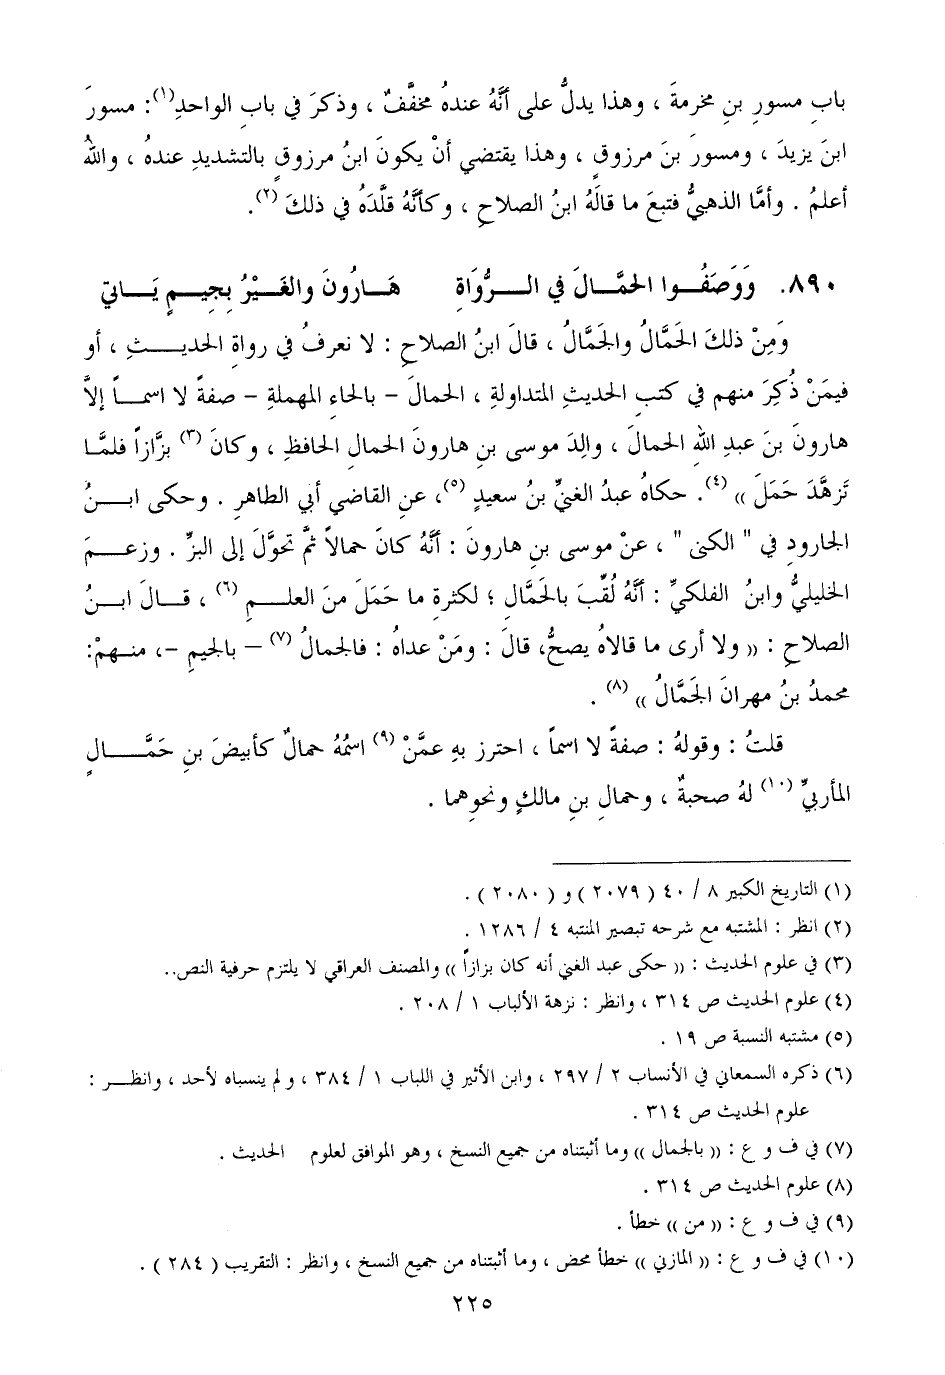 بابِ مسورِ بنِ مخرمةَ ، وهذا يدلُّ على أنَّهُ عندهُ مخفَّفٌ ، وذكرَ في بابِ الواحدِ(١): مسورَ
ابنَ يزيدَ ، ومسورَ بنَ مرزوقٍ ، وهذا يقتضي أنْ يكونَ ابنُ مرزوقٍ بالتشديدِ عندهُ ، واللهُ
أعلمُ . وأمَّا الذهبيُّ فتبعَ ما قالَهُ ابنُ الصلاحِ ، وكأنَّهُ قلَّدَهُ في ذلكَ (٢).
٨٩٠. وَوَصَفُوا الحَمَّالَ في الرُّوَاةِ هَارُونَ والغَيْرُ بِجِيمٍ يَاتي
وَمِنْ ذلكَ الحَمَّالُ والجَمَّالُ ، قالَ ابنُ الصلاحِ : لا نعرفُ في رواةِ الحديثِ ، أو
فيمَنْ ذُكِرَ منهم في كتبِ الحديثِ المتداولةِ ، الحمالَ – بالحاءِ المهملةِ – صفةً لا اسماً إلاَّ
هارونَ بنَ عبدِ اللهِ الحمالَ ، والِدَ موسى بنِ هارونَ الحمالِ الحافظِ ، وكانَ (٣) بزَّازاً فلمَّا
تَزهَّدَ حَمَلَ )) (٤). حكاهُ عبدُ الغنيِّ بنُ سعيدٍ (٥)، عنِ القاضي أبي الطاهرِ . وحكى ابنُ
الجارودِ في " الكنى " ، عنْ موسى بنِ هارونَ : أنَّهُ كانَ حمالاً ثمَّ تحوَّلَ إلى البزِّ . وزعمَ
الخليليُّ وابنُ الفلكيِّ : أنَّهُ لُقِّبَ بالحَمَّالِ ؛ لكثرةِ ما حَمَلَ منَ العلمِ (٦) ، قالَ ابنُ
الصلاحِ : (( ولا أرى ما قالاهُ يصحُّ، قالَ : ومَنْ عداهُ : فالجمالُ (٧) – بالجيمِ –، منهمْ:
محمدُ بنُ مهرانَ الجَمَّالُ )) (٨) .
قلتُ : وقولهُ : صفةً لا اسماً ، احترز بهِ عمَّنْ (٩) اسمُهُ حمالٌ كأبيضَ بنِ حَمَّالٍ
المأربيِّ (١٠) لهُ صحبةٌ ، وحمالِ بنِ مالكٍ ونحوِهما .
(١) التاريخ الكبير ٨ / ٤٠ ( ٢٠٧٩ ) و ( ٢٠٨٠ ) .
(٢) انظر : المشتبه مع شرحه تبصير المنتبه ٤ / ١٢٨٦ .
(٣) في علوم الحديث : (( حكى عبد الغني أنه كان بزازاً )) والمصنف العراقي لا يلتزم حرفية النص..
(٤) علوم الحديث ص ٣١٤ ، وانظر : نزهة الألباب ١ / ٢٠٨ .
(٥) مشتبه النسبة ص ١٩ .
(٦) ذكره السمعاني في الأنساب ٢ / ٢٩٧ ، وابن الأثير في اللباب ١ / ٣٨٤ ، ولم ينسباه لأحد ، وانظر :
علوم الحديث ص ٣١٤ .
(٧) في ف و ع : (( بالجمال )) وما أثبتناه من جميع النسخ ، وهو الموافق لعلوم الحديث .
(٨) علوم الحديث ص ٣١٤ .
(٩) في ف و ع : (( من )) خطأ .
(١٠) في ف و ع : (( المازني )) خطأ محض ، وما أثبتناه من جميع النسخ ، وانظر : التقريب ( ٢٨٤ ) .
٢٢٥